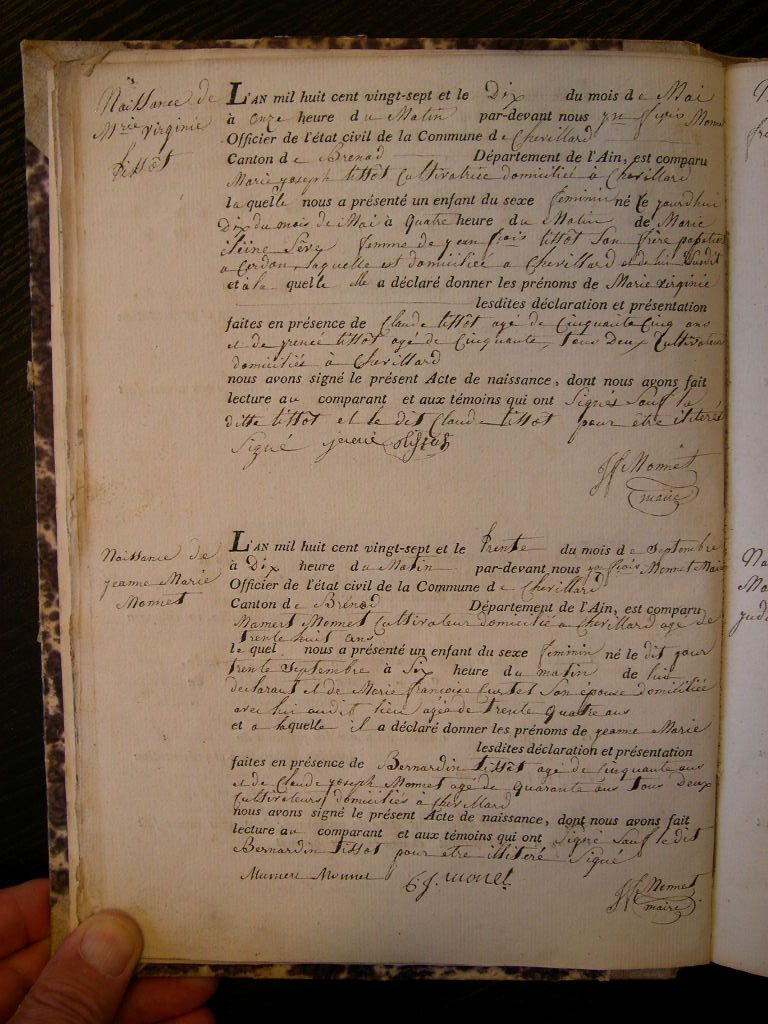 Naissance de
Mrie virginie
tissot
L'AN mil huit cent vingt-sept et le Dix du mois de Mai
à onze heure du Matin par-devant nous jn frois Monnet
Officier de l'état civil de la Commune de Chevillard
Canton de Brenod Département de l'Ain, est comparu
Marie joseph tissot Cultivatrice domiciliée à Chevillard
la quelle nous a présenté un enfant du sexe feminin né le jourdhui
Dix du mois de Mai à Quatre heure du Matin de Marie
Sève femme de jean frois tissot Son frère papetier
a Cerdon, laquelle est domiciliée à Chevillard et de lui Susdit
et à la quelle elle a déclaré donner les prénoms de Marie virginie
lesdites déclaration et présentation
faites en présence de Claude tissot agé de Cinquante Cinq ans
et de tissot agé de Cinquante, tous Deux Cultivateurs
domiciliés à Chevillard
nous avons signé le présent Acte de naissance, dont nous avons fait
lecture au comparant et aux témoins qui ont Signés Sauf la
ditte tissot et le dit Claude tissot pour être iliterés
Signé
jf Monnet
maire
Naissance de
jeanne Marie
Monnet
L'AN mil huit cent vingt-sept et le trente du mois de Septembre
à Dix heure du Matin par-devant nous jn frois Monnet Maire
Officier de l'état civil de la Commune de Chevillard
Canton de Brénod Département de l'Ain, est comparu
Mamert Monnet Cultivateur domicilié a Chevillard agé de
trente huit ans
le quel nous a présenté un enfant du sexe feminin né le dit jour
trente Septembre à Six heure du matin de lui
declarant et de Marie françoise Curtet Son épouse domiciliée
avec lui audit lieu agée de trente quatre ans
et a laquelle il a déclaré donner les prénoms de jeanne Marie
lesdites déclaration et présentation
faites en présence de Bernardin tissot agé de Cinquante ans
et de Claude joseph Monnet agé de quarante ans tous deux
Cultivateurs domiciliés à Chevillard
nous avons signé le présent Acte de naissance, dont nous avons fait
lecture au comparant et aux témoins qui ont Signé Sauf le dit
Bernardin tissot pour etre illiteré Signé
Mamert Monnet C j. monet
jf Monnet
maire